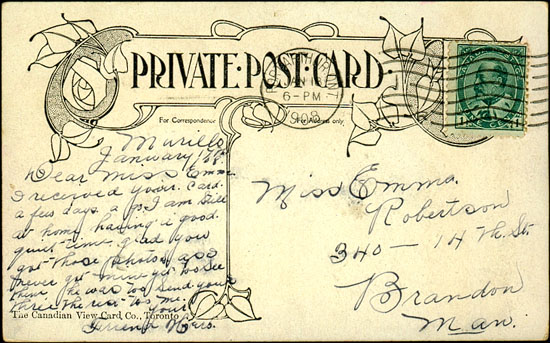 PRIVATE·POST·CARD·
6-PM
For Correspondence
For Address only
Murillo
January
Dear Miss Emma
I received your card
a few days a go. I am still
at home having a good
quiet time glad you
got those photos as I
never got mine yet to see
them he was to send your
three the rest to me.
your
friend
Miss Emma
Robertson
340-14 th. St
Brandon
Man.
The Canadian View Card Co., Toronto